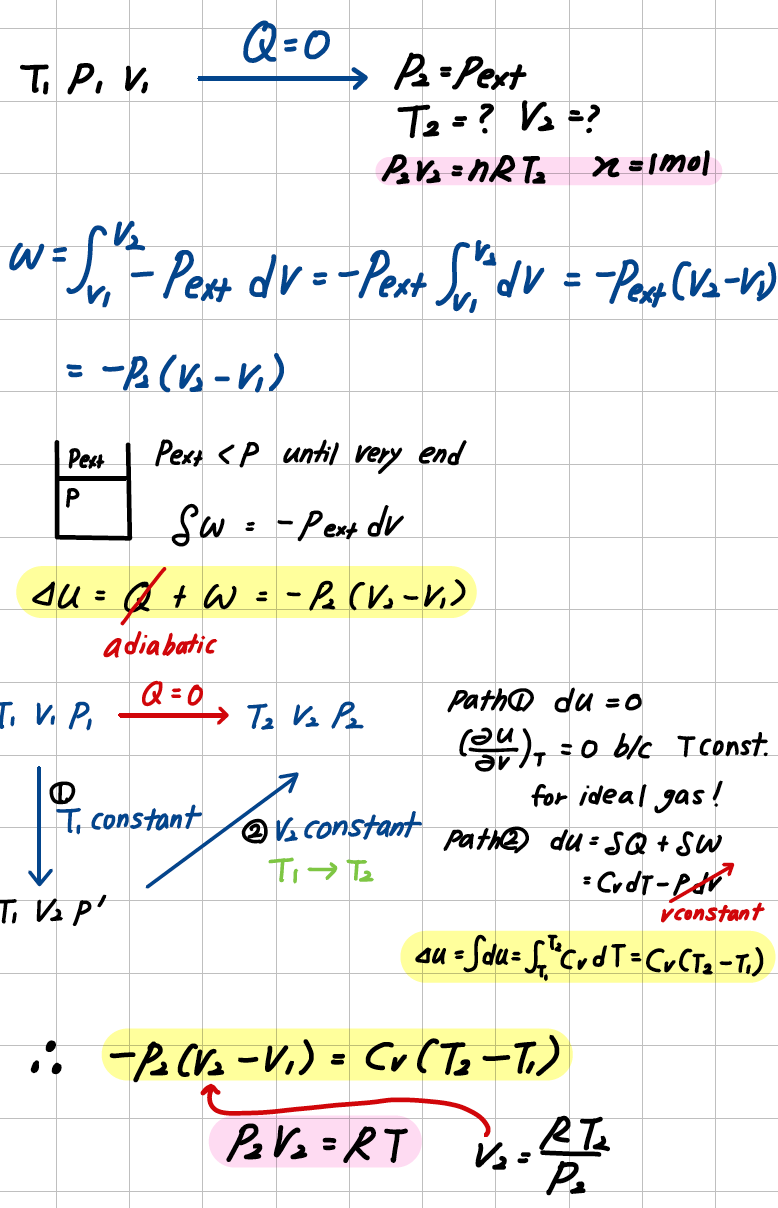 T₁ P₁ V₁ Q=0 P₂ = Pext
T₂ = ? V₂ = ?
P₂V₂ = nRT₂ n = 1mol
w = ∫_{V₁}^{V₂} -Pext dV = -Pext ∫_{V₁}^{V₂} dV = -Pext (V₂-V₁)
= -P₂ (V₂ - V₁)
Pext
P
Pext < P until very end
δw = -Pext dV
ΔU = Q + W = -P₂ (V₂ - V₁)
adiabatic
T₁ V₁ P₁ Q=0 T₂ V₂ P₂
① T₁ constant
② V₂ constant
T₁ → T₂
T₁ V₂ P'
Path① dU = 0
(∂U/∂V)_T = 0 b/c T const.
for ideal gas!
Path② dU = δQ + δW
= CvdT - Pdv
V constant
ΔU = ∫dU = ∫_{T₁}^{T₂} Cv dT = Cv (T₂ - T₁)
∴ -P₂ (V₂ - V₁) = Cv (T₂ - T₁)
P₂ V₂ = RT V₂ = RT₂/P₂